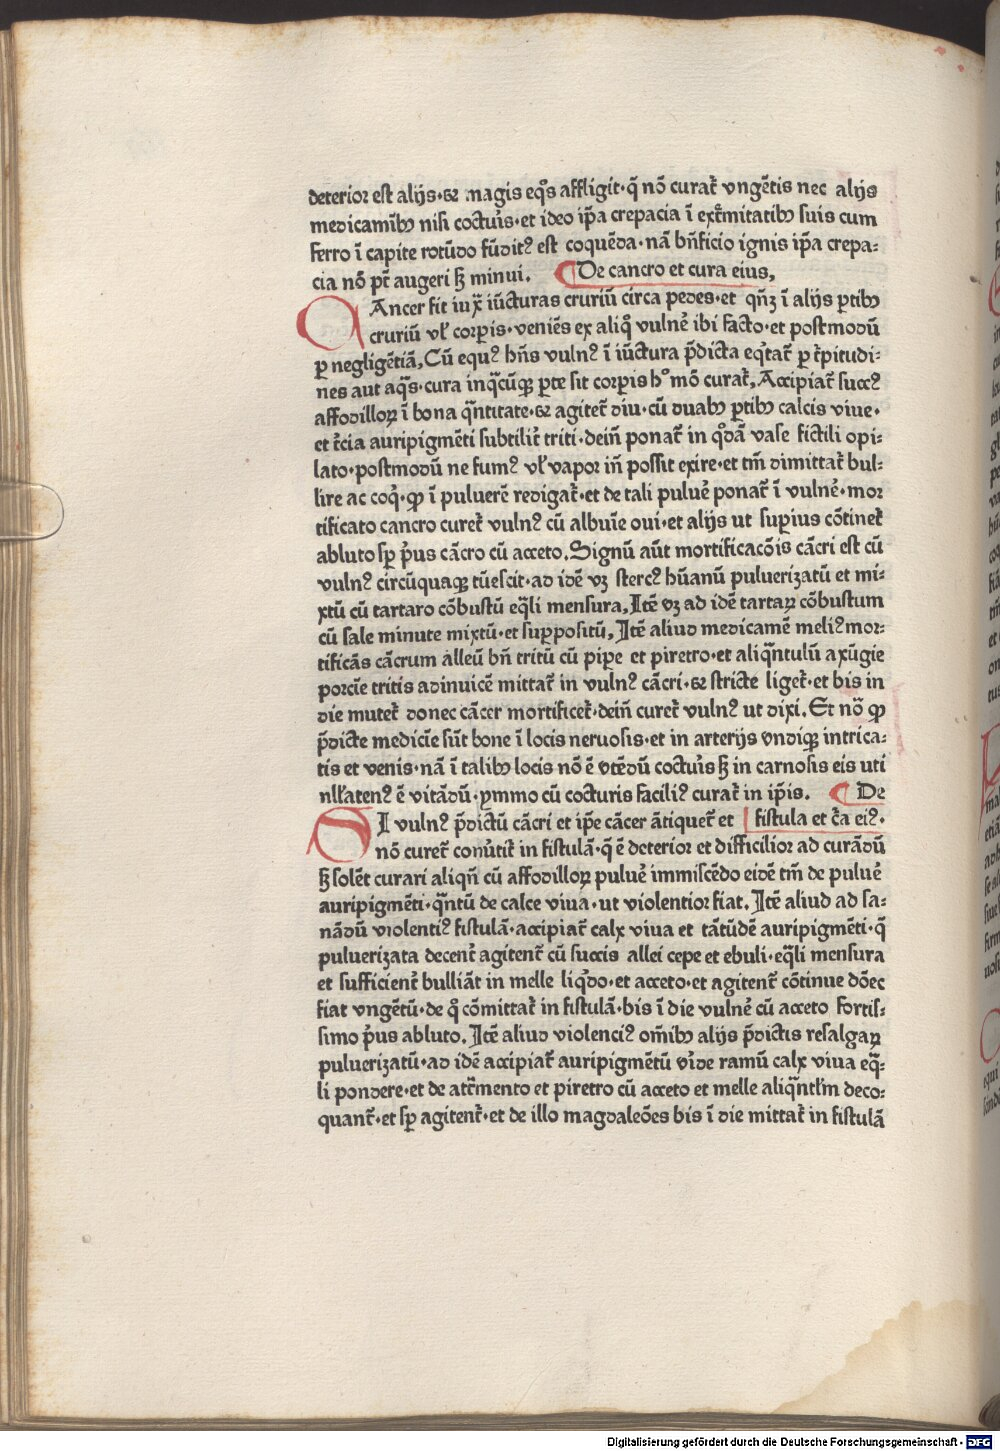 deterior est alijs·et magis eqͦs affligit·q̄ nō curat᷑ vngētis nec alijs
medicamībꝰ nisi coctur̄is·et ideo ip̄a crepacia ī ext᷑mitatibꝰ suis cum
ferro ī capite rotūdo fūditꝰ est coquēda·nā bn̄ficio ignis ip̄a crepa-
cia nō pt̄ augeri sꝫ minui. ¶De cancro et cura eius,
CAncer fit iuxͣ iūcturas cruriū circa pedes·et qn̄ꝫ ī alijs ꝑtibꝰ
cruriū vl̄ corꝑis·veniēs ex aliqͦ vulnē ibi facto·et postmodū
ꝑ negligētiā, Cū equꝰ hn̄s vulnꝰ ī iūctura p̄dicta eqͥtat᷑ ꝑ t᷑pitudi-
nes aut aqͣs·cura inqͣcūqꝫ ꝑte sit corꝑis hͦ mō curat᷑, Accipiat᷑ succꝰ
affodilloꝝ ī bona qͣntitate·et agitet᷑ diu·cū duabꝰ ꝑtibꝰ calcis viue·
et t᷑cia auripigmēti subtilit᷑ triti·dein̄ ponat᷑ in qͦdā vase fictili opi-
lato·postmodū ne fumꝰ vl̄ vapor in̄ possit exire·et tm̄ dimittat᷑ bul-
lire ac coqͥ·ꝙ ī puluerē redigat᷑·et de tali puluē ponat᷑ ī vulnē·mor
tificato cancro curet᷑ vulnꝰ cū albuīe oui·et alijs ut supius cōtinet᷑
abluto sꝑ p̄us cācro cū aceto. Signū aūt mortificacōis cācri est cū
vulnꝰ circūquaqꝫ tūescit·ad idē vꝫ stercꝰ hūanū puluerizatū et mi-
xtū cū tartaro cōbustū eqͣli mensura, Itē vꝫ ad idē tartaꝝ cōbustum
cū sale minute mixtū·et suppositū, Itē aliud medicamē meliꝰ mor-
tificās cācrum alleū bn̄ tritū cū pipe et piretro·et aliqͣntulū axūgie
porcīe tritis adinuicē mittat᷑ in vulnꝰ cācri·et stricte liget᷑·et bis in
die mutet᷑ donec cācer mortificet᷑·dein̄ curet᷑ vulnꝰ ut dixi. Et nō ꝙ
p̄dicte medicīe sūt bone ī locis neruosis·et in arterijs vndiqꝫ intrica-
tis et venis·nā ī talibꝰ locis nō ē vtēdū coctur̄is sꝫ in carnosis eis uti
nll̄atenꝰ ē vitādū·ymmo cū cocturis faciliꝰ curat᷑ in ip̄is. ¶ De
SI vulnꝰ p̄dictū cācri et ip̄e cācer ātiquet᷑ et fistula et c᷑a eiꝰ·
nō curet᷑ conu̓tit᷑ in fistulā·q̄ ē deterior et difficilior ad curādū
sꝫ solēt curari aliqn̄ cū affodilloꝝ puluē immiscēdo eidē tm̄ de puluē
auripigmēti·qͣntū de calce viua·ut violentior fiat. Itē aliud ad sa-
nādū violentiꝰ fistulā·accipiat᷑ calx viua et tātūdē auripigmēti·q̄
puluerizata decent᷑ agitent᷑ cū succis allei cepe et ebuli·eqͣli mensura
et sufficient᷑ bulliāt in melle liqͥdo·et aceto·et agitent᷑ cōtinue dōec
fiat vngētū·de qͦ cōmittat᷑ in fistulā·bis ī die vulnē cū aceto fortis-
simo p̄us abluto. Itē aliud violenciꝰ om̄ibꝰ alijs p̄dictis resalgaꝝ
puluerizatū·ad idē accipiat᷑ auripigmētū vīde ramū calx viua eqͣ-
li pondere·et de at᷑mento et piretro cū aceto et melle aliqͣntl̄m deco-
quant᷑·et sꝑ agitent᷑·et de illo magdaleōes bis ī die mittat᷑ in fistulā
Digitalisierung gefördert durch die Deutsche Forschungsgemeinschaft - DFG